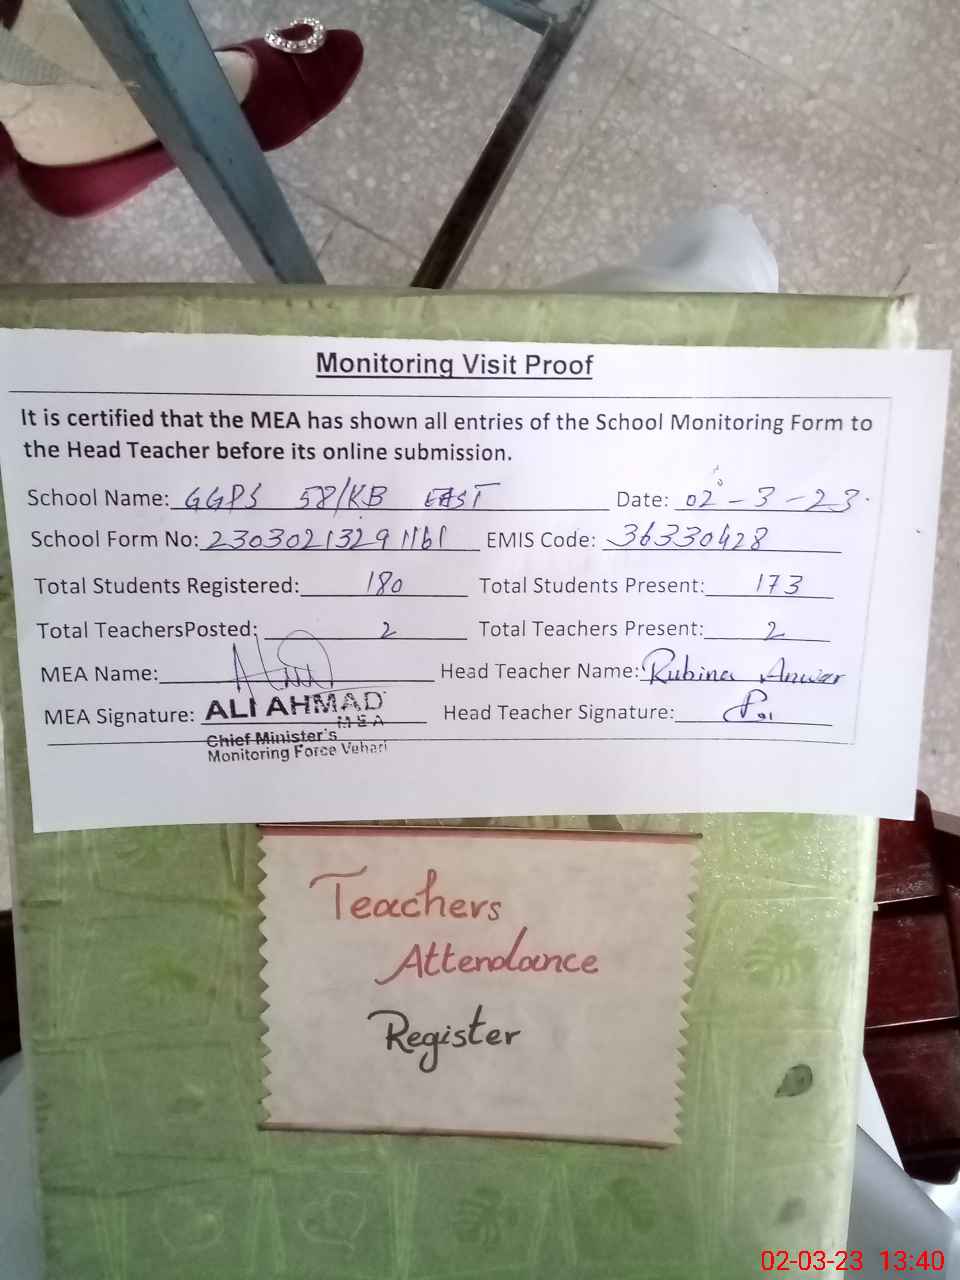 Monitoring Visit Proof
It is certified that the MEA has shown all entries of the School Monitoring Form to
the Head Teacher before its online submission.
School Name: GGPS 58/KB EAST Date: 02-3-23
School Form No: 2303021329 1161 EMIS Code: 36330428
Total Students Registered: 180 Total Students Present: 173
Total TeachersPosted: 2 Total Teachers Present: 2
MEA Name: Head Teacher Name: Rubina Anwar
MEA Signature: ALI AHMAD Head Teacher Signature:
MEA
Chief Minister's
Monitoring Force Vehari
Teachers
Attendance
Register
02-03-23 13:40